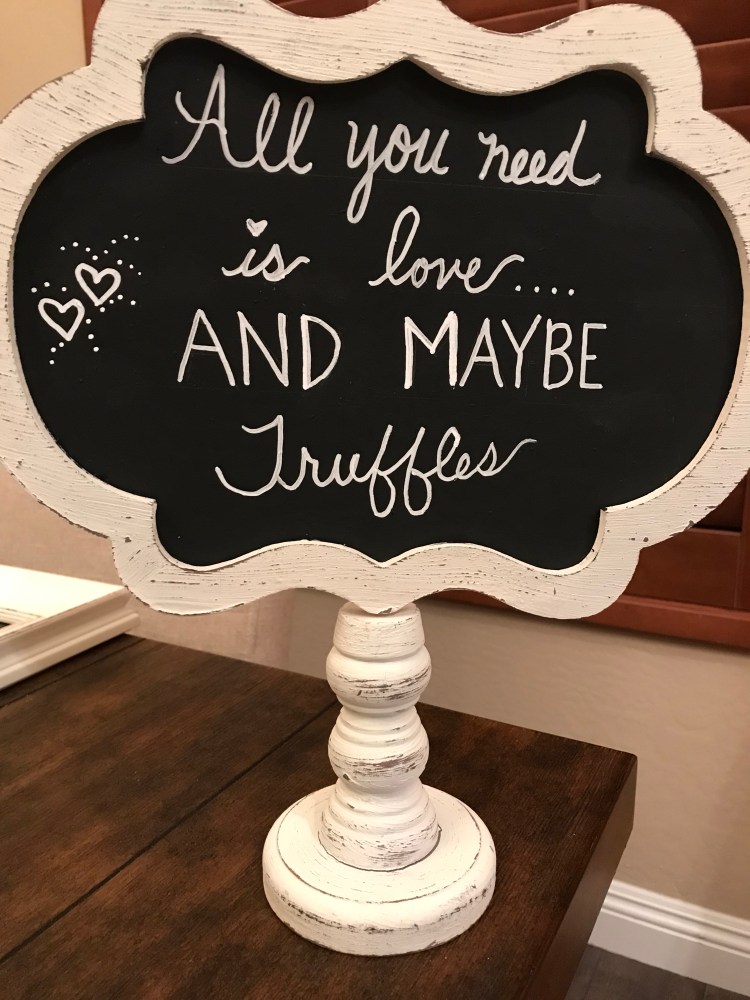 All you need
is love....
AND MAYBE
Truffles